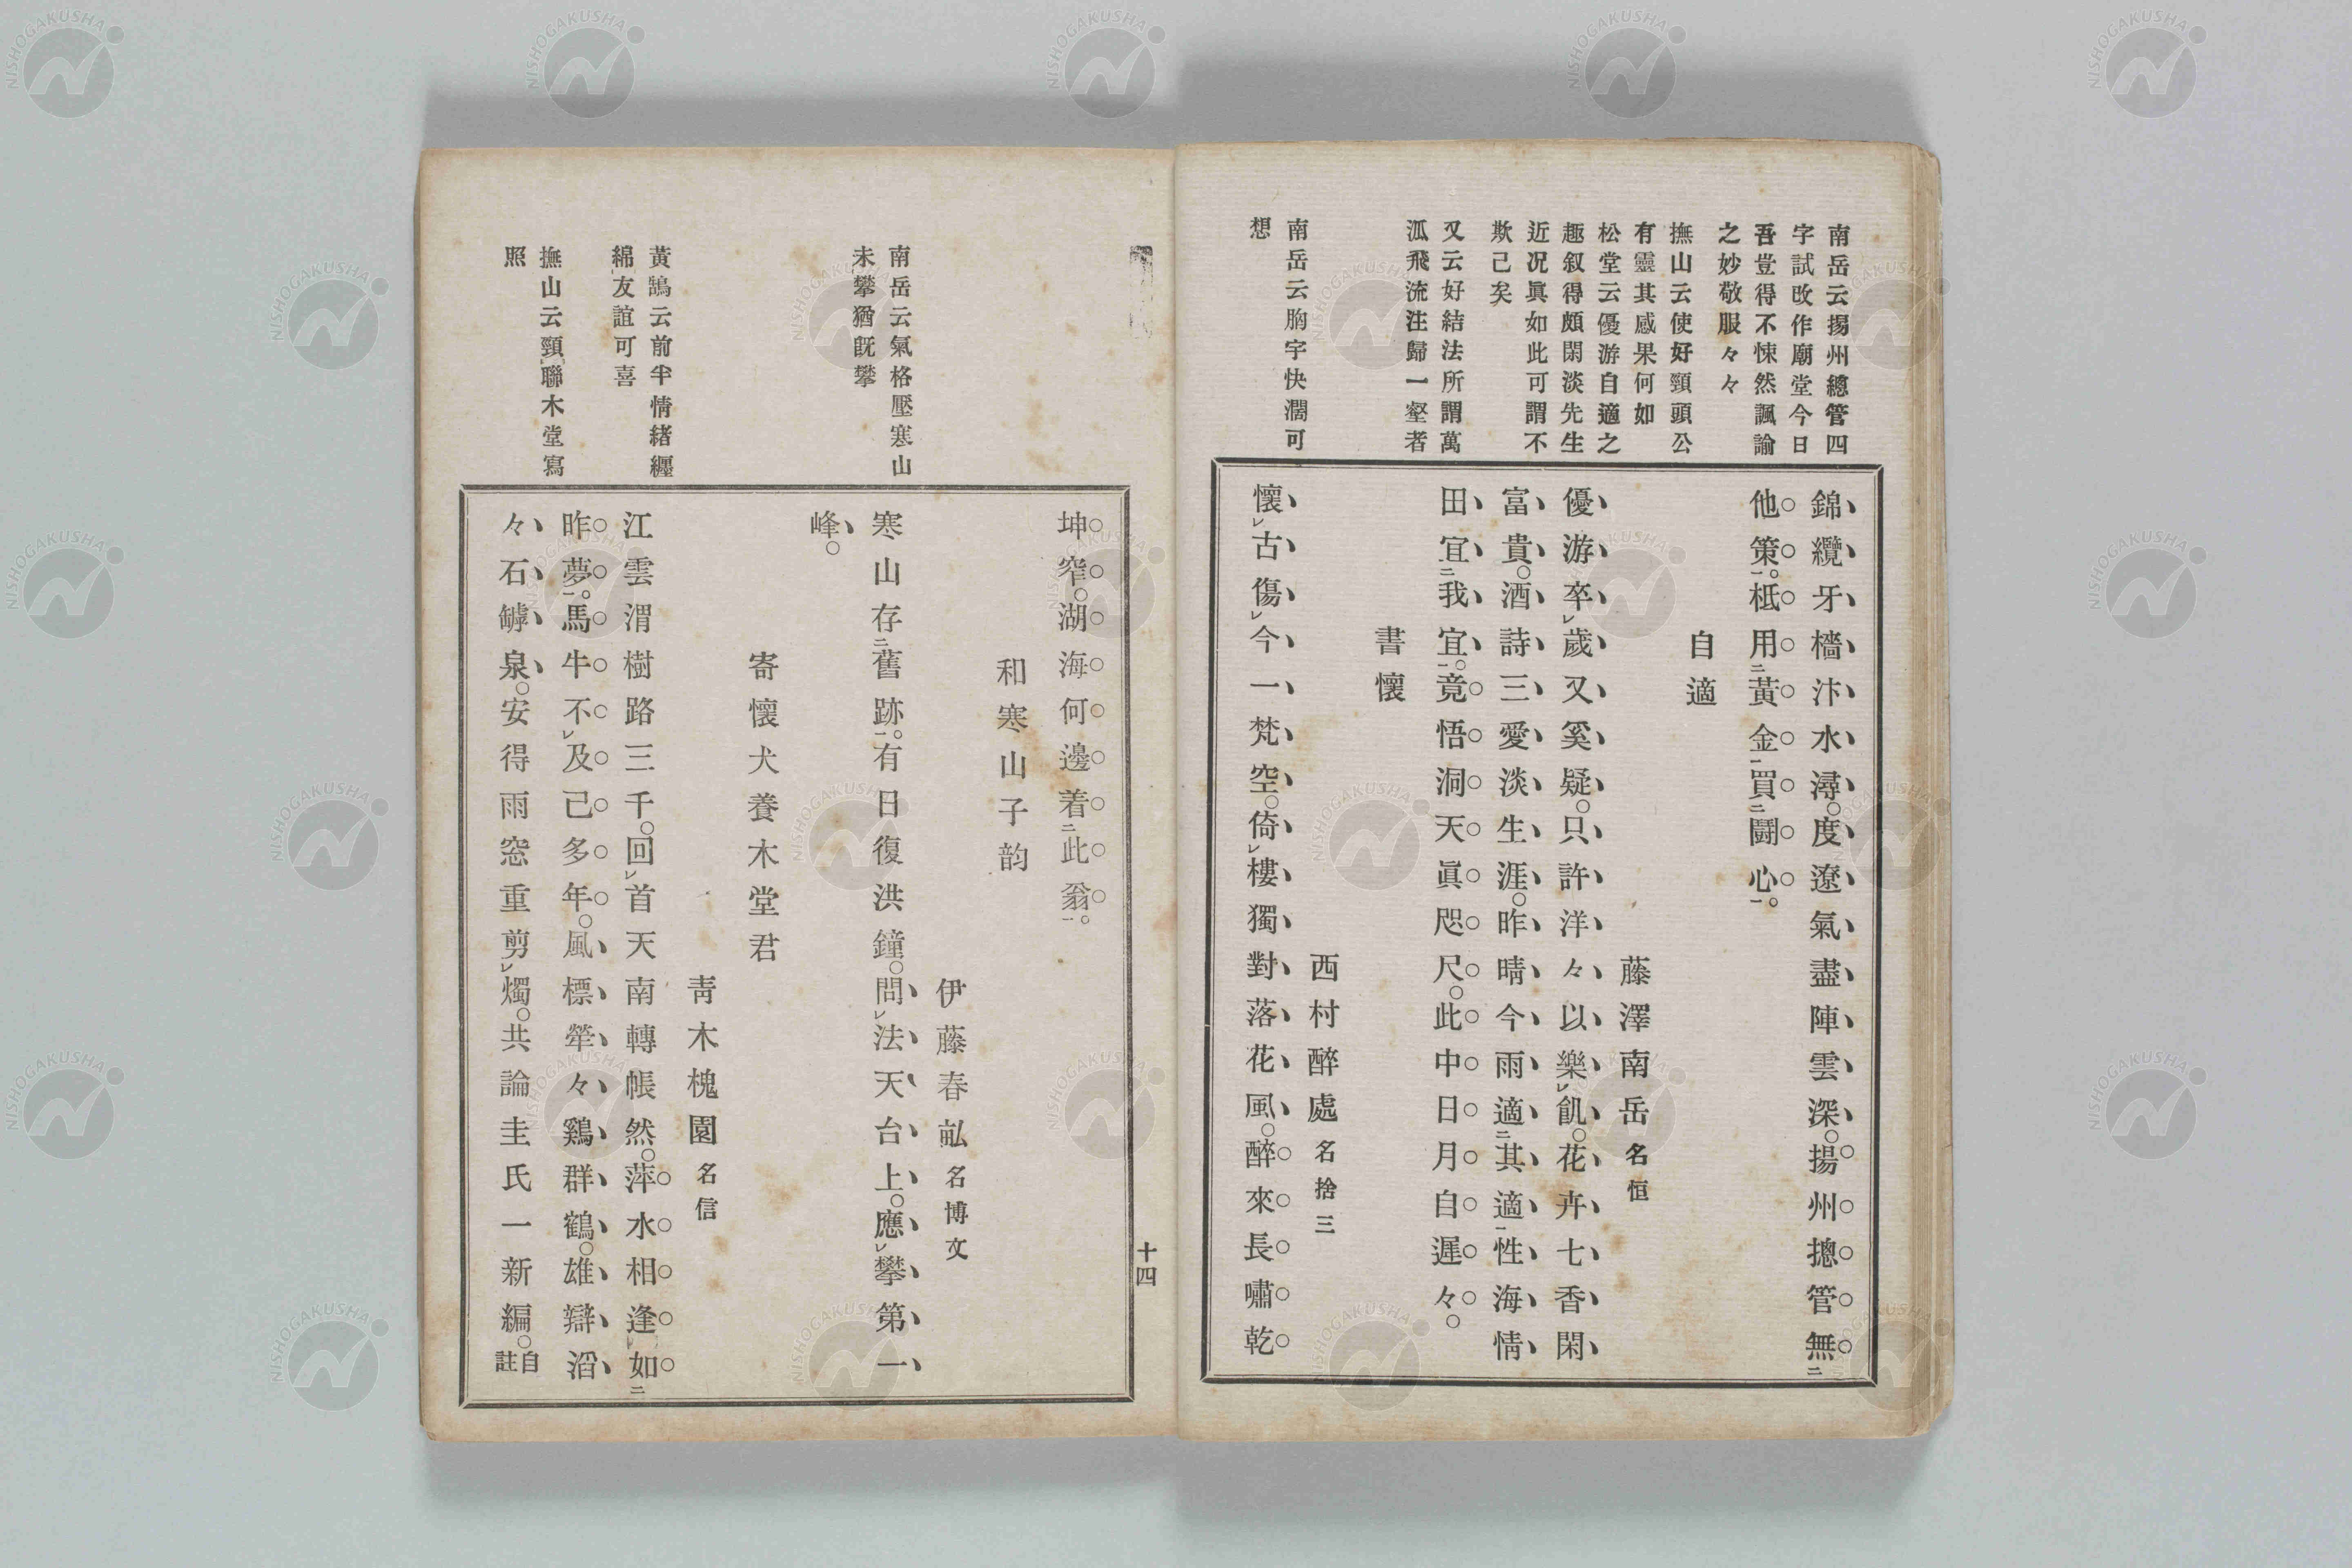 南岳云揚州總管四
字試改作廟堂今日
吾豈得不悚然諷諭
之妙敬服々々
撫山云使好頸頭公
有靈其感果何如
松堂云優游自適之
趣叙得頗閑淡先生
近況眞如此可謂不
欺己矣
又云好結法所謂萬
派飛流注歸一壑者
南岳云胸字快濶可
想
錦纜牙檣汴水潯。度遼氣盡陣雲深。揚州摠管無二
他策一。柢用二黃金一買二鬪心一。
自適
藤澤南岳名恒
優游卒レ歲又奚疑。只許洋々以樂レ飢。花卉七香閑
富貴。酒詩三愛淡生涯。昨晴今雨適二其適一性海情
田宜二我宜一。竟悟洞天眞咫尺。此中日月自遲々。
書懷
西村醉處名捨三
懷レ古傷レ今一梵空。倚レ樓獨對落花風。醉來長嘯乾
坤窄。湖海何邊着二此翁一。
和寒山子韵
伊藤春畝名博文
寒山存二舊跡一。有日復洪鐘。問レ法天台上。應レ攀第一
峰。
寄懷犬養木堂君
靑木槐園名信
江雲渭樹路三千。回レ首天南轉帳然。萍水相逢如二
昨夢一。馬牛不レ及己多年。風標犖々鷄群鶴。雄辯滔
々石罅泉。安得雨窓重剪レ燭。共論圭氏一新編。自註
南岳云氣格壓寒山
未攀猶既攀
黃鵠云前半情緒纒
綿友誼可喜
撫山云頸聯木堂寫
照
十四
NISHOGAKUSHA